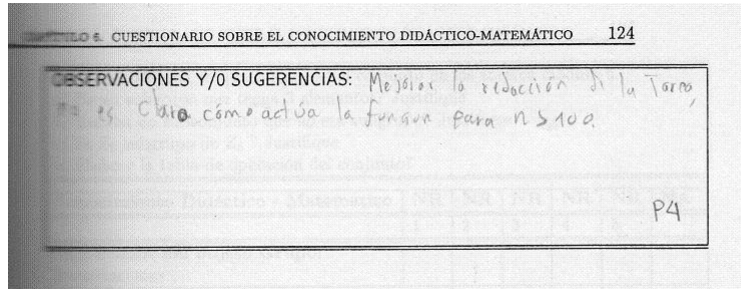 CAPÍTULO 6. CUESTIONARIO SOBRE EL CONOCIMIENTO DIDÁCTICO-MATEMÁTICO 124
OBSERVACIONES Y/O SUGERENCIAS: Mejorar la redacción de la Tarea,
no es Claro cómo actúa la función para n ≤ 100.
P4